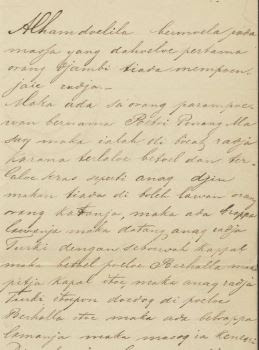 Alhamdoelila bermoela pada
massa yang dahoeloe pertama
orang Djambi tiada mempoen-
jaie radja.
Maka ada sa'orang parampoe-
wan bernama Putri Penang Ma-
soy maka ialah di boeat radja
karana terlaloe betoel dan ter-
laloe kras seperti anag djin
makan tiada di boleh lawan orang
orang katanja, maka ada brappa
lamanja maka datang anag radja
Turki dengan seboewah kappal
maka bethel poeloe Berhalla maka
pitja kapal itoe maka anag radja
turki itoepon doedog di poeloe
Berhalla itoe maka ada brappa
lamanja maka masog ia